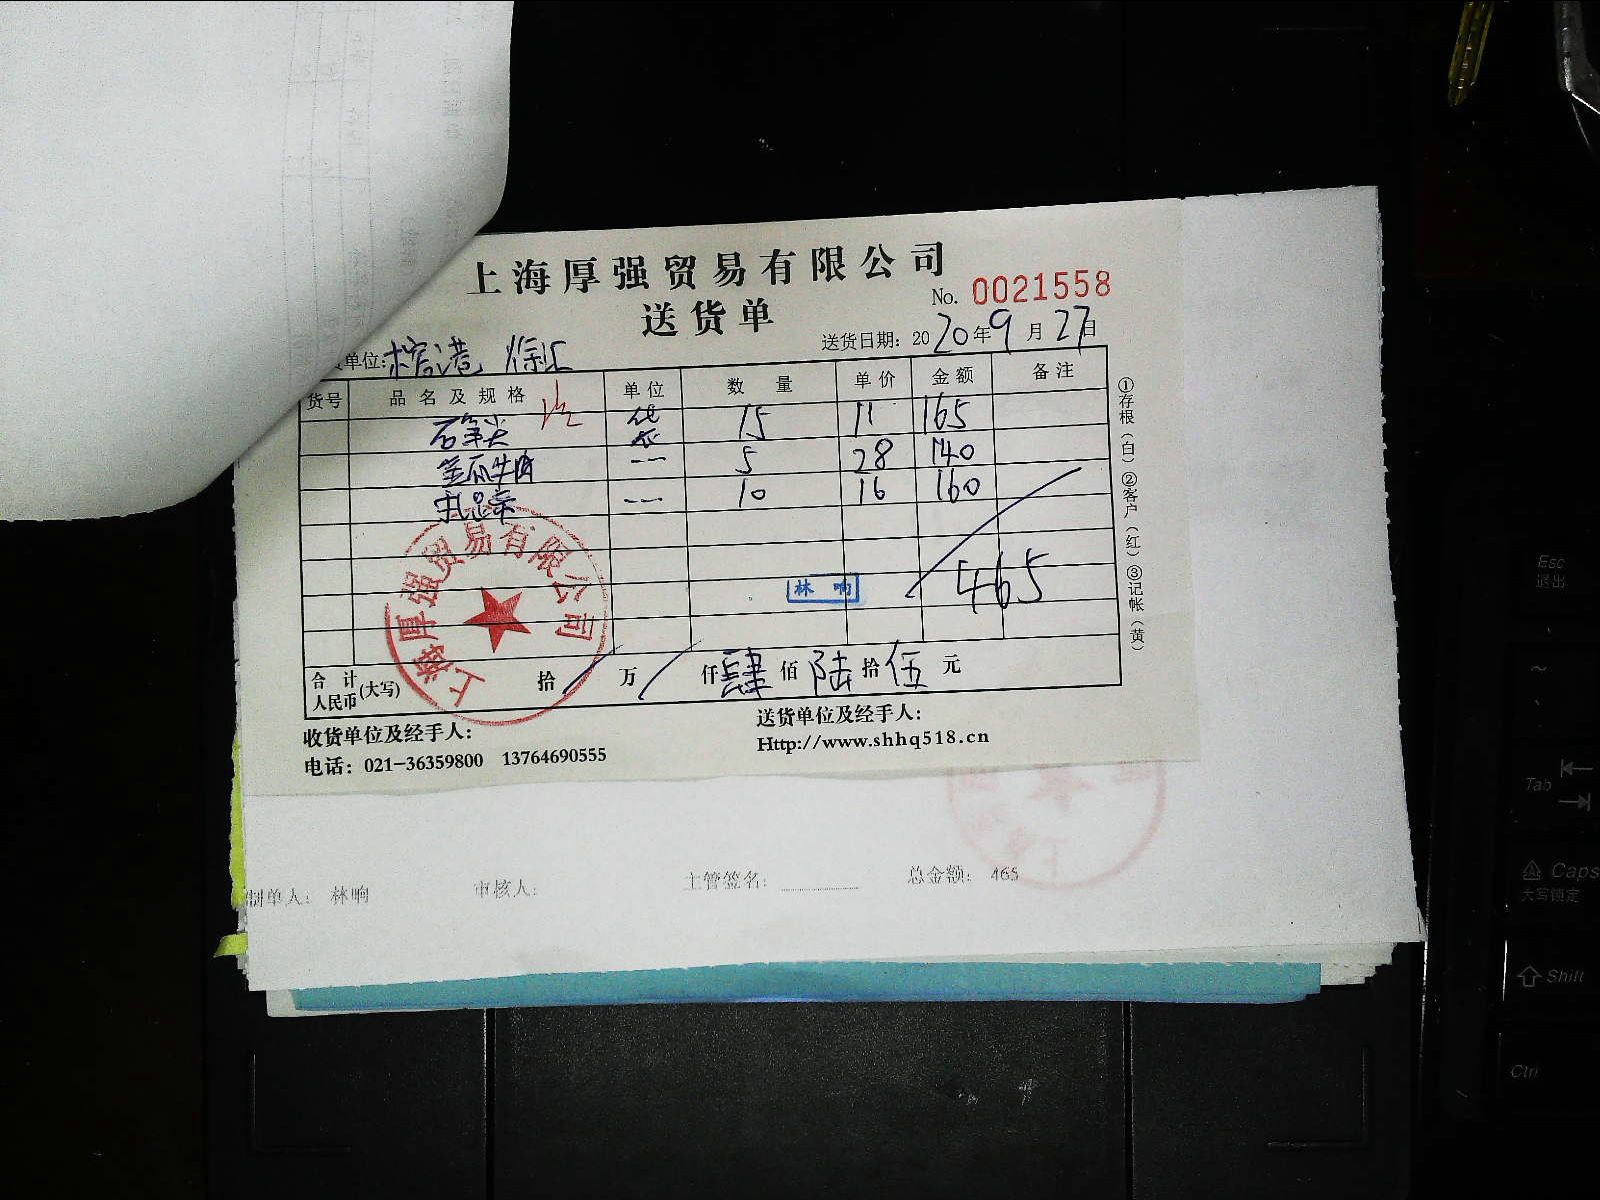 上海厚强贸易有限公司
送货单
No. 0021558
送货日期：2020年9月27日
单位：
货号 品名及规格 单位 数量 单价 金额 备注
笋尖 袋 15 11 165
金瓜牛肉 〃 5 28 140
〃 10 16 160
林响
465
合计人民币(大写) 拾 万 仟肆佰陆拾伍元
上海厚强贸易有限公司
①存根(白) ②客户(红) ③记帐(黄)
收货单位及经手人：
送货单位及经手人：
电话：021-36359800 13764690555
Http://www.shhq518.cn
制单人： 林响 审核人： 主管签名： 总金额： 465
Esc
退出
~
Tab
Caps
大写锁定
Shift
Ctrl